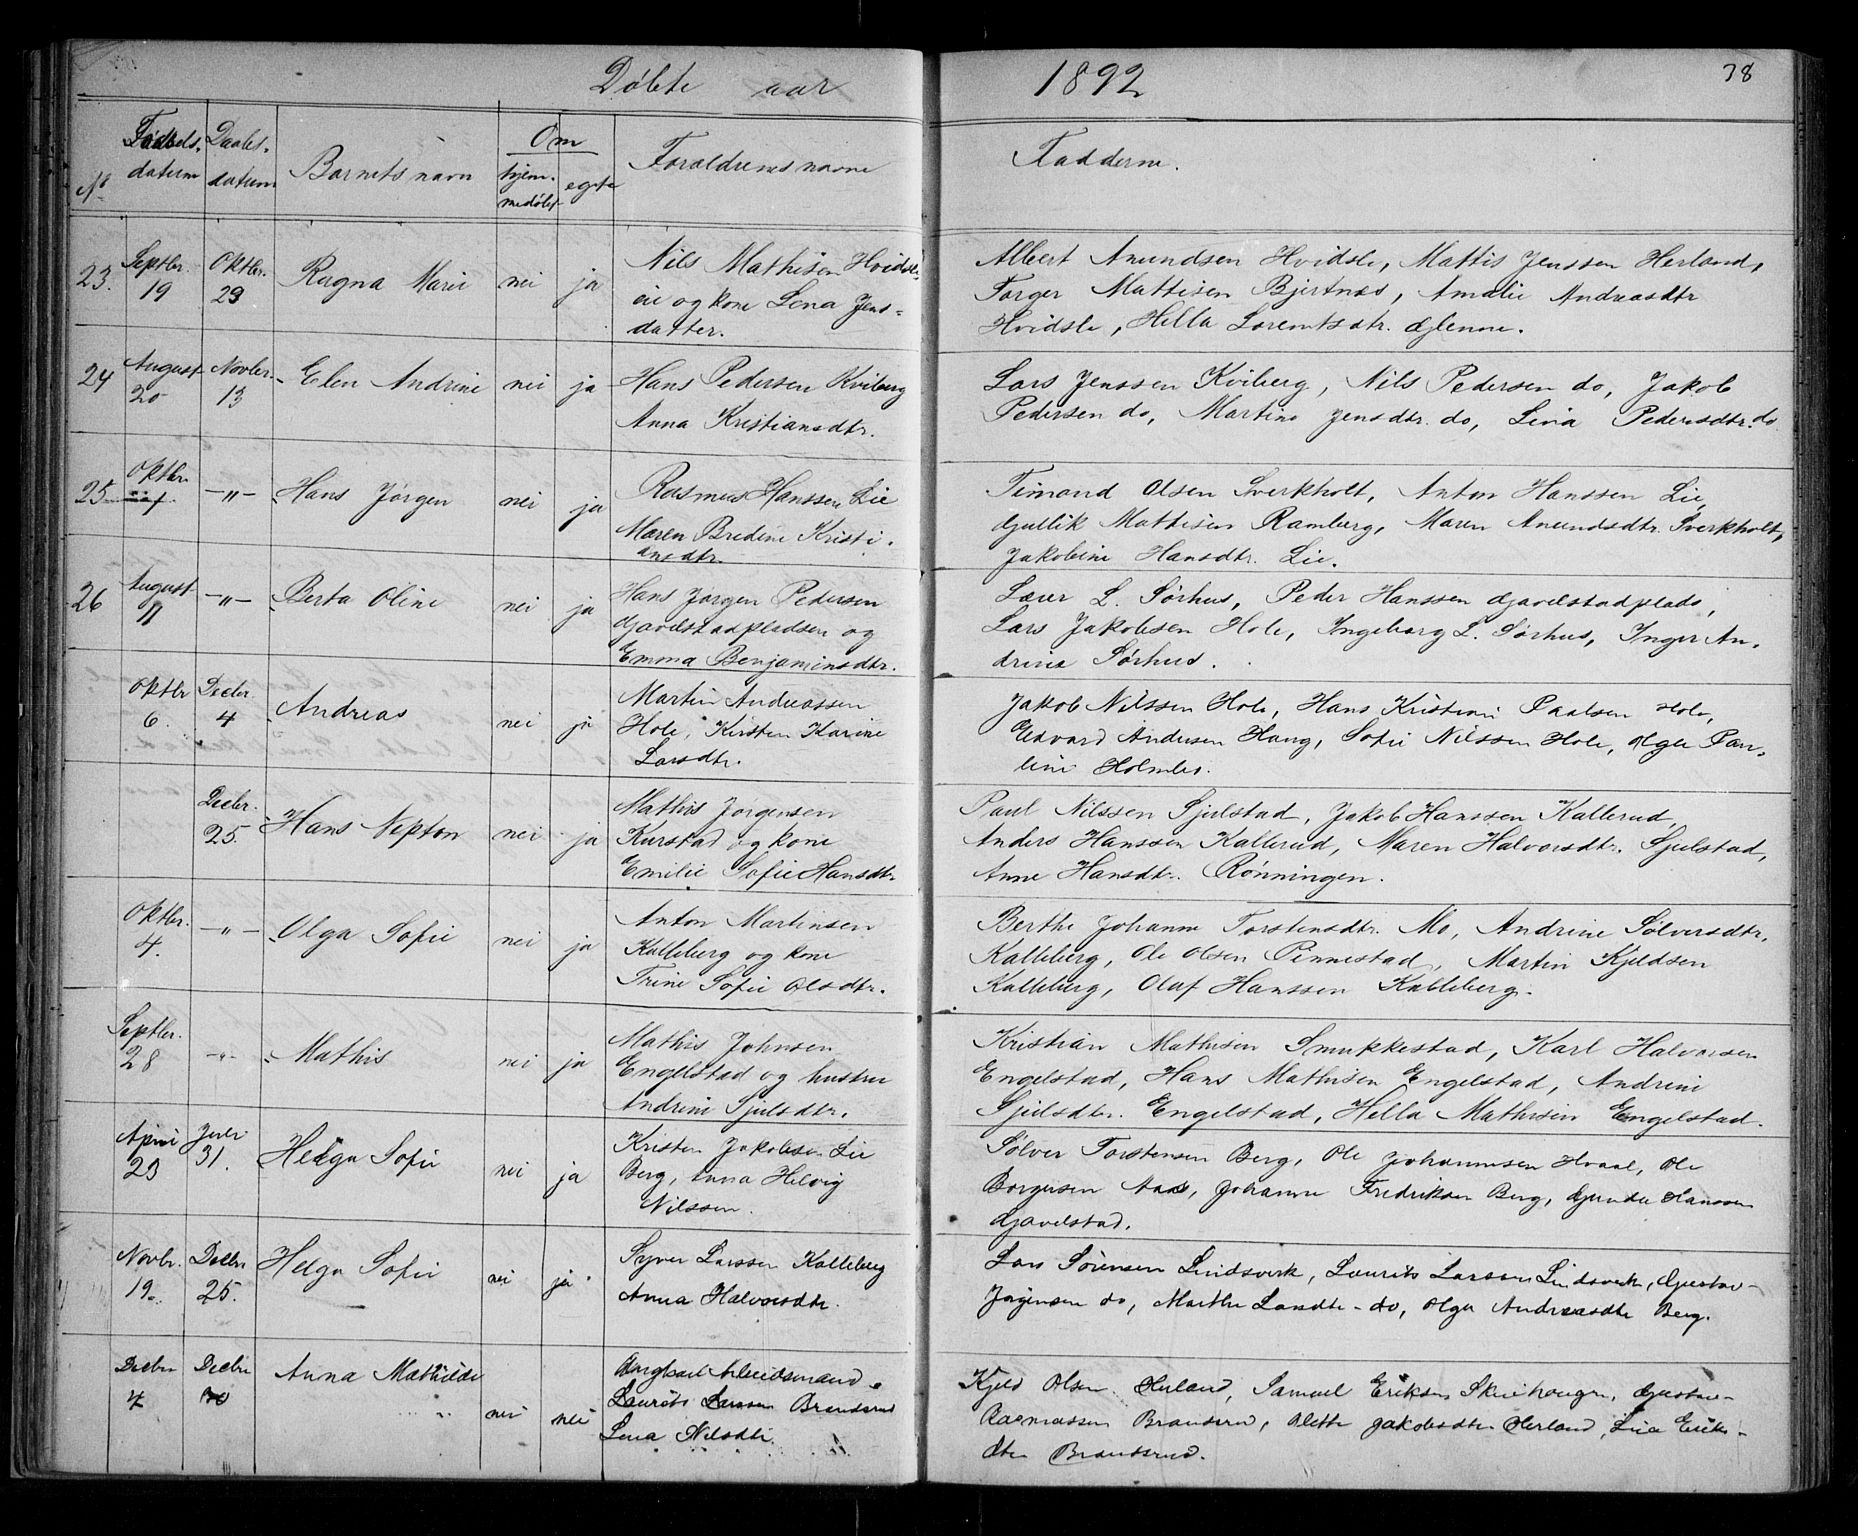 Døbte aar 1892
38
No
Fødsels-
datum
Daabs-
datum
Barnets navn
Om
hjem-
medøbt
egte
Forældrenes navne
Fadderne.
23.
Septbr.
19
Oktbr.
23
Ragna Marie
nei
ja
Nils Mathisen Hvidsle-
eie og kone Lena Jens-
datter.
Albert Amundsen Hvidsle, Mattis Jenssen Herland,
Torger Mattisen Bjertnæs, Amalie Andreasdtr
Hvidsle, Hella Lorentsdtr. Glenne.
24
August
20
Novbr.
13
Elen Andrine
nei
ja
Hans Pedersen Kviberg
Anna Kristiansdtr.
Lars Jenssen Kviberg, Nils Pedersen do, Jakob
Pedersen do, Martine Jensdtr. do, Lina Pedersdtr. do
25
Oktbr.
-"-
Hans Jørgen
nei
ja
Rasmus Hanssen Lie
Maren Bredine Kristi-
ansdtr.
Timand Olsen Sverkholt, Anton Hanssen Lie,
Gullik Mattisen Ramberg, Maren Amundsdtr. Sverkholt,
Jakobine Hansdtr. Lie.
26
August
11
-"-
Berta Oline
nei
ja
Hans Jørgen Pedersen
Gavelstadpladsen og
Emma Benjaminsdtr.
L. Sørhus, Peder Hanssen Gavelstadplads,
Lars Jakobsen Hole, Ingeborg L. Sørhus, Inger An-
drine Sørhus.
Oktbr
6.
Decbr.
4
Andreas
nei
ja
Martin Andreassen
Hole, Kirsten Karine
Larsdtr.
Jakob Nilssen Hole, Hans Kristian Paalsen Hole,
Edvard Andersen Haug, Sofie Nilssen Hole, Olga Pau-
line
Decbr.
25.
Hans Nepton
nei
ja
Mathis Jørgensen
Kurstad og kone
Emilie Sofie Hansdtr
Paul Nilssen Sjulstad, Jakob Hanssen Kallerud,
Anders Hanssen Kallerud, Maren Halvorsdtr. Sjulstad,
Anne Hansdtr. Rønningen.
Oktbr.
4.
-"-
Olga Sofie
nei
ja
Anton Martinsen
Kalleberg og kone
Trine Sofie Olsdtr.
Berthe Johanne Torstensdtr. Mo, Andrine Sølversdtr.
Kalleberg, Ole Olsen Pinnestad, Martin Kjeldsen
Kalleberg, Oluf Hanssen Kalleberg.
Septbr.
28
-"-
Mathis
nei
ja
Mathis Johnsen
Engelstad og hustru
Andrine Sjulsdtr.
Kristian Mathisen Smukkestad, Karl Halvorsen
Engelstad, Hans Mathisen Engelstad, Andrine
Sjulsdtr. Engelstad, Hella Mathisen Engelstad.
April
23
31.
Helga Sofie
nei
ja
Kristen Jakobsen Lie
Berg, Anna Helvig
Nilssen.
Sølver Torstensen Berg, Ole Johannesen Hvaal, Ole
Borgersen Aas, Johanne Fredriksen Berg, Gunda Hanssen
Gavelstad.
Novbr.
19.
Decbr
25.
Helga Sofie
nei
ja
Syver Larssen Kalleberg
Anna Halvorsdtr.
Lars Sørensen Lindsverk, Laurits Larssen Lindsverk, Gustav
Jørgensen do, Marthe do, Olga Andreasdtr Berg.
Decbr
4
Decbr
Anna Mathilde
nei
nei
Ungkarl Arbeidsmand
Laurits Larssen Brandsrud
Lena Nilsdtr.
Kjeld Olsen Herland, Samuel Eriksen Skiehaugen, Gustav
Rasmussen Brandsrud, Olette Jakobsdtr Herland, Lia Eriks-
dtr Brandsrud.